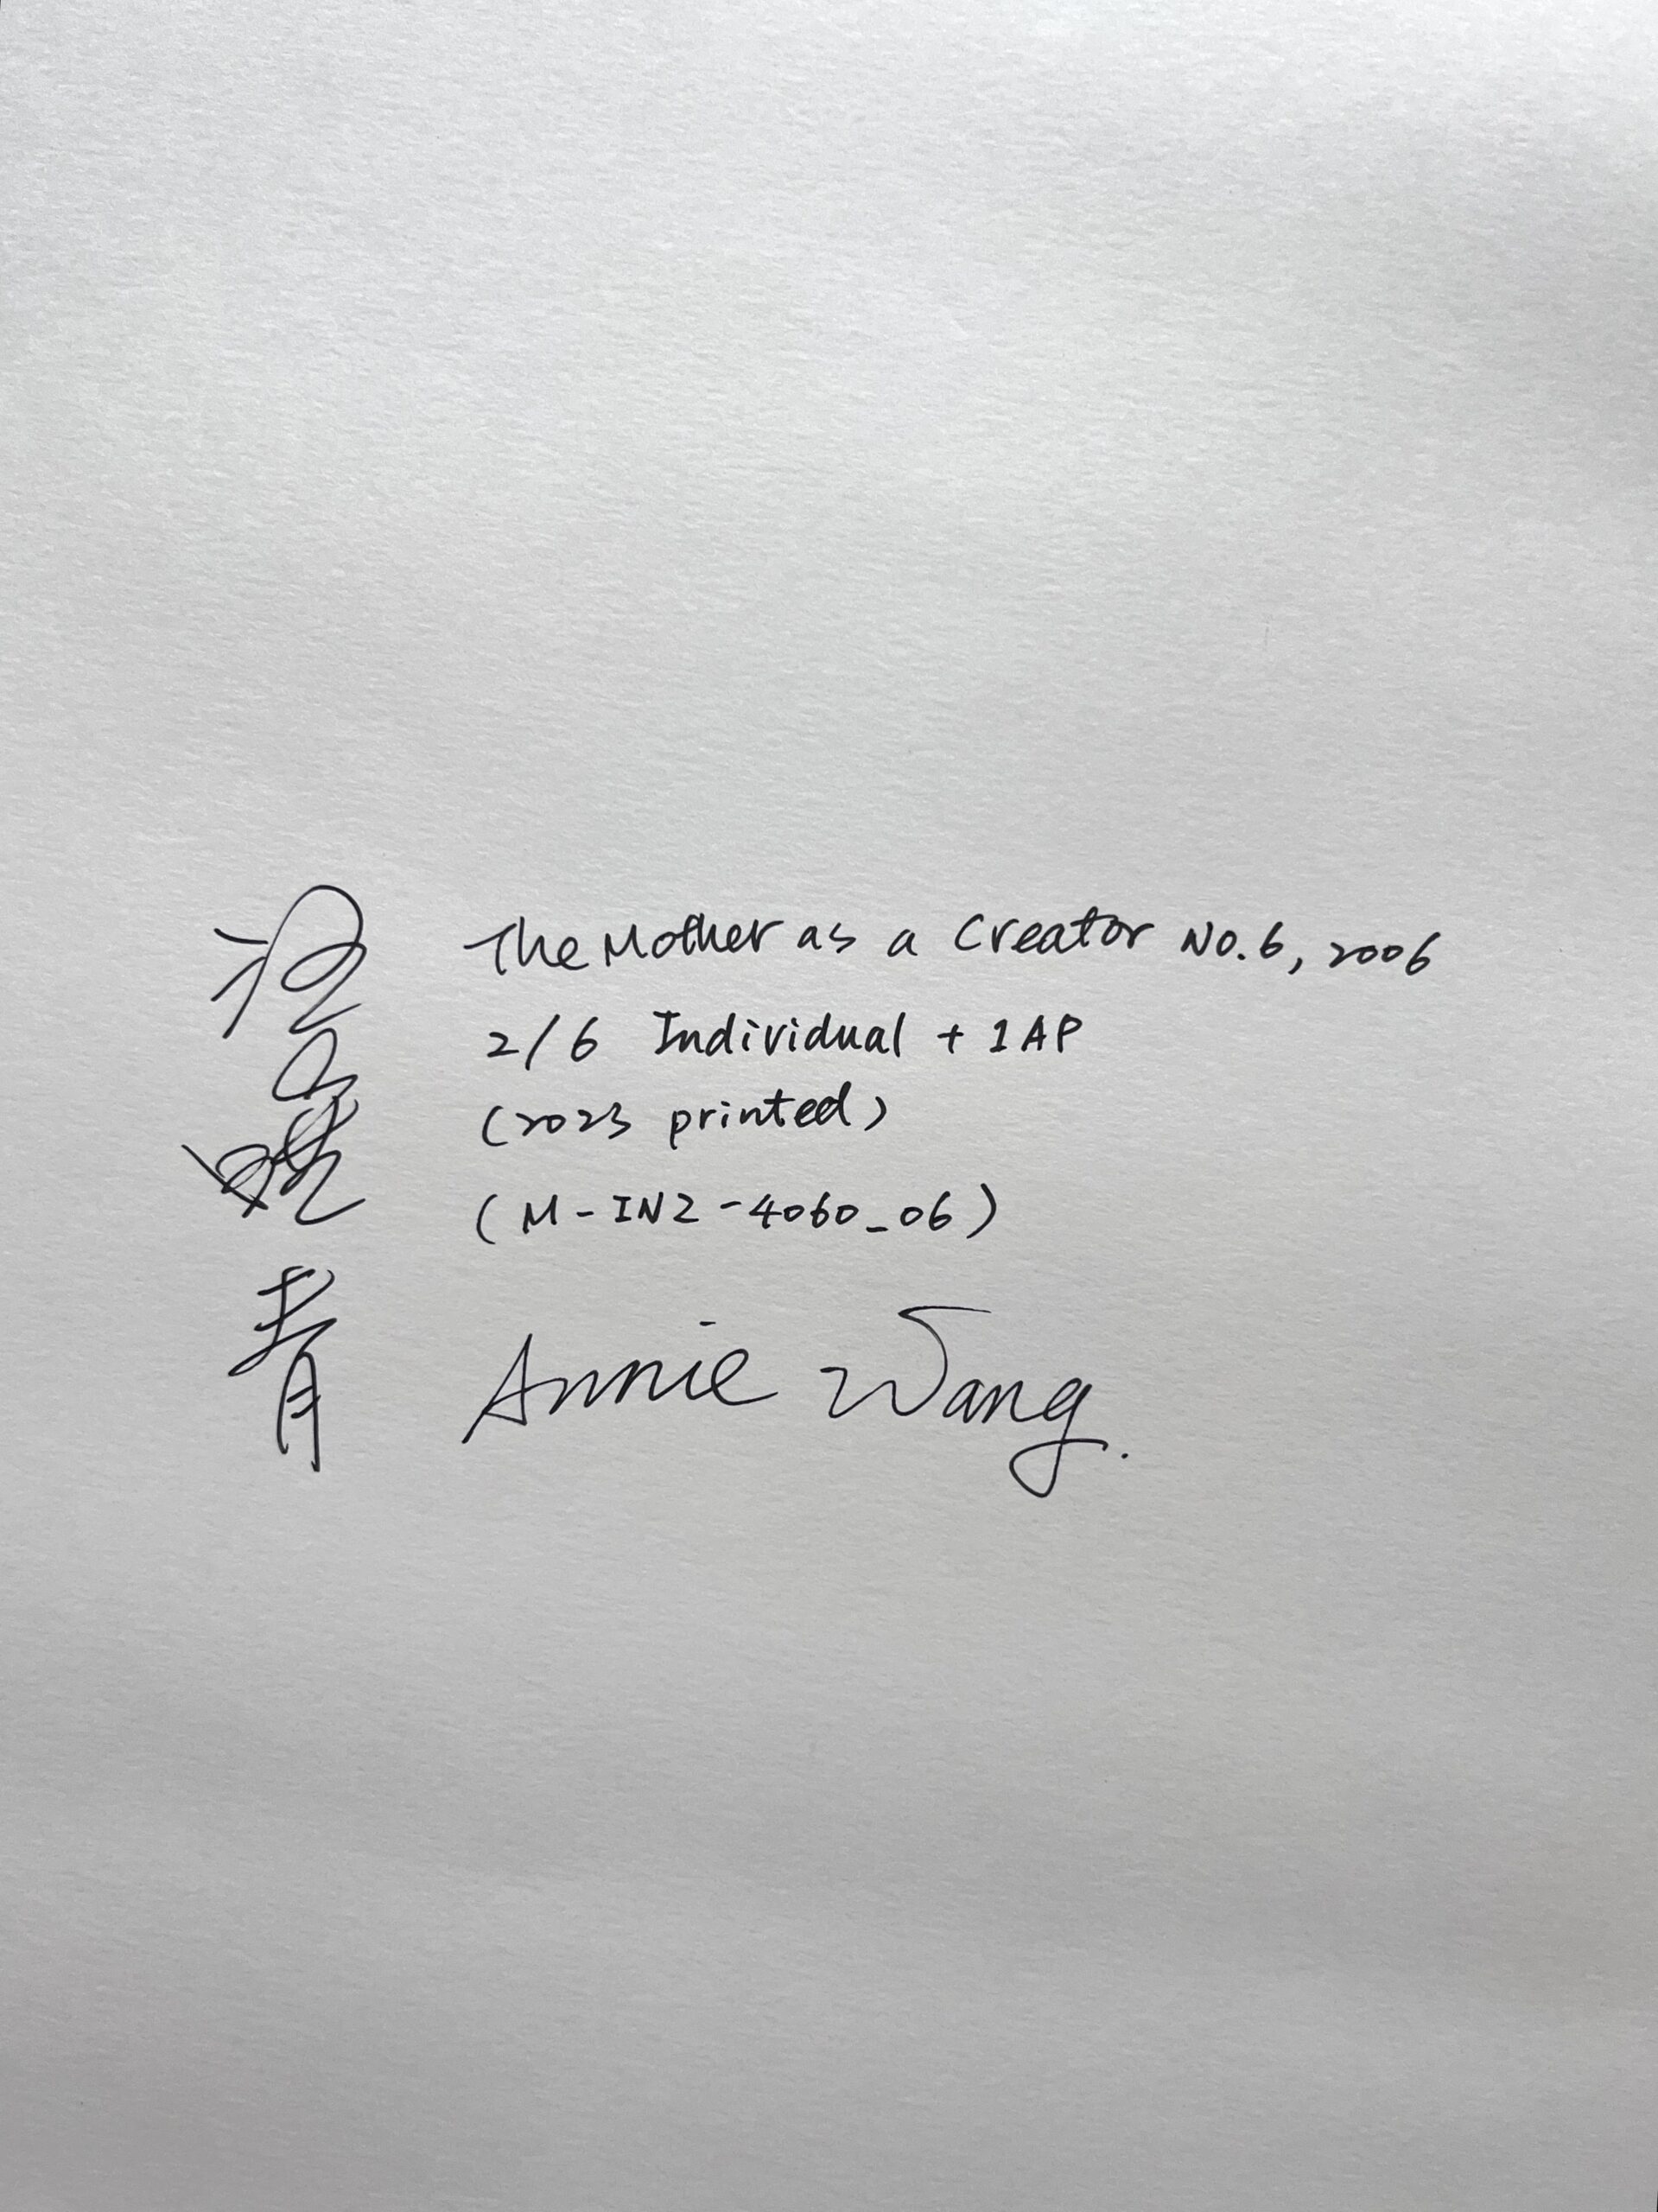 The Mother as a Creator No.6, 2006
2/6 Individual + 1AP
(2023 printed)
(M-IN2-4060_06)
Annie Wang.
青